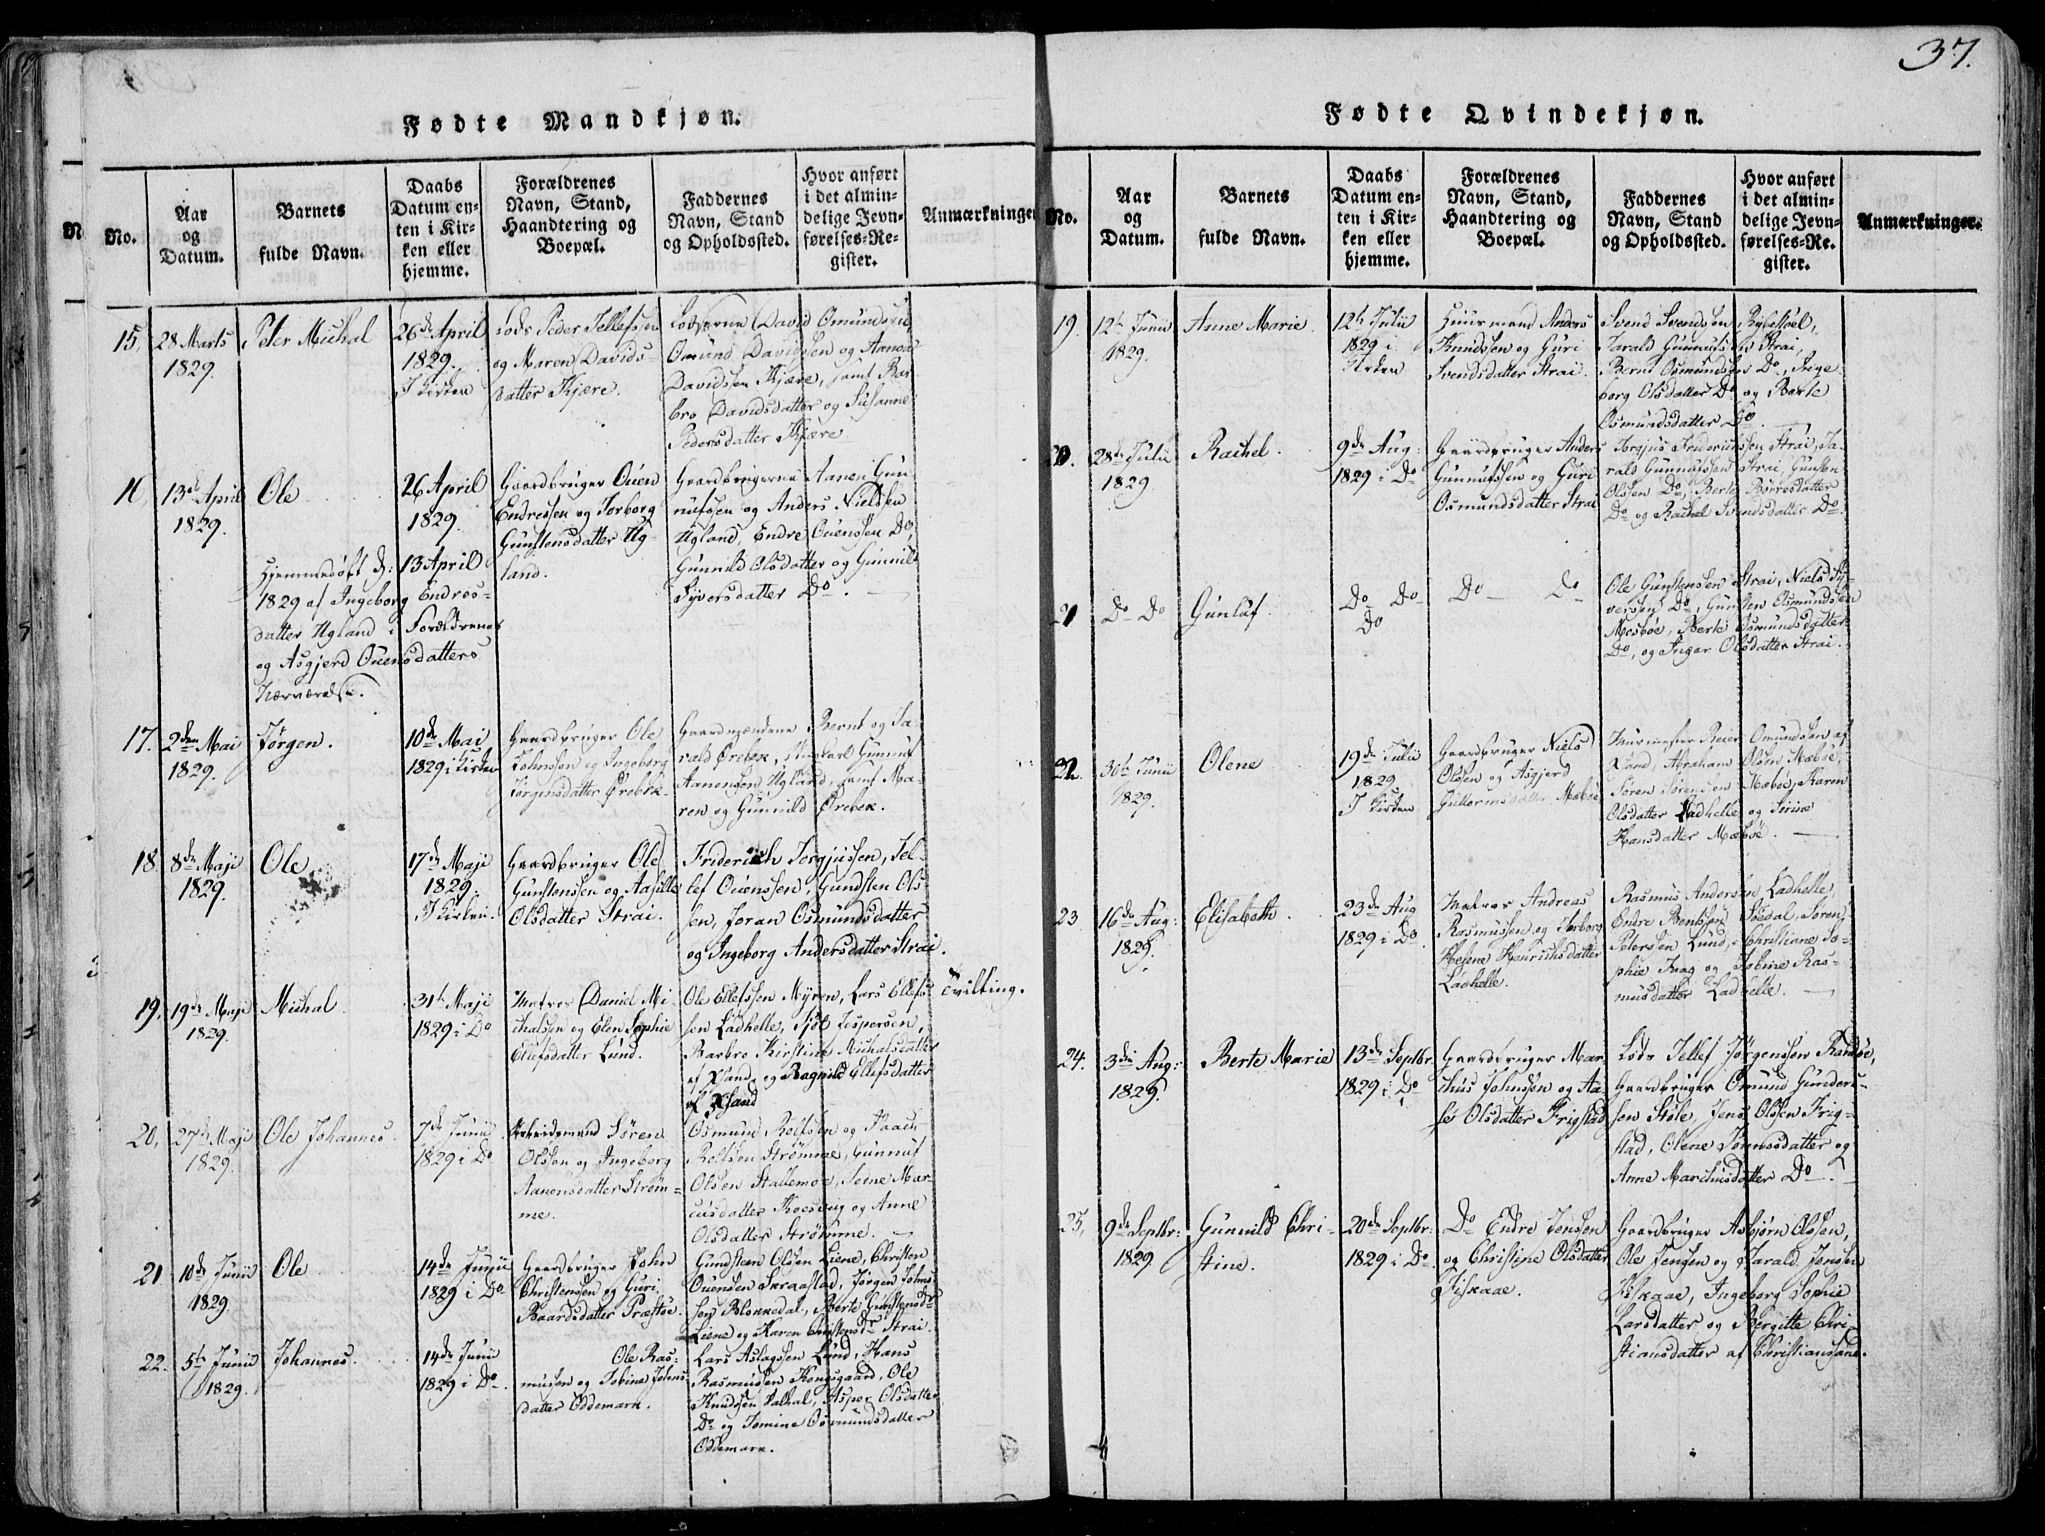 37.
Fødte Mandkjøn.
No.
Aar
og
Datum.
Barnets
fulde Navn.
Daabs
Datum en-
ten i Kir-
ken eller
hjemme.
Forældrenes
Navn, Stand,
Haandtering og
Boepæl.
Faddernes
Navn, Stand
og Opholdssted.
Hvor anført
i det almin-
delige Jevn-
førelses-Re-
gister.
Anmærkninger
15,
28 Marts
1829.
Peter Michal
26de April
1829.
I Kirken
Lods Peder Tellefssen
og Maren Davids-
datter Kjære.
Lodserne David Omundssen,
Omund Davidssen og Aanon
Davidssen Kjære, samt Bar
bro Davidsdatter og Susanne
Pedersdatter Kjære
16,
13de April
1829.
Ole
26 April
1829.
Gaardbruger Ouen
Endressen og Torborg
Gunstensdatter Ug-
land.
Gaardbrugerne Aanen Gun
nufssen og Anders Nielssen
Ugland, Endre Ouenssen Do,
Gunnild Olsdatter og Gunnild
Syversdatter Do.
Hjemmedøbt d: 13 April
1829 af Ingeborg Endres-
datter Ugland i Forældrenes
og Asgjerd Ouensdatters
Nærværelse.
17.
2den Mai
1829.
Jørgen.
10de Mai
1829 i Kirken
Gaardbruger Ole
Johnssen og Ingeborg
Jørgensdatter Ørebek
Gaardmændene Bernt og Ta-
rald Ørebek, Ungkarl Gunnuf
Aanensen Ugland, samt Ma-
ren og Gunnild Ørebek.
18.
8de Maji
1829.
Ole
17de Maji
1829.
I Kirken.
Gaardbruger Ole
Gunstenssen og Aasille
Olsdatter Strai.
Friderich Torgjussen, Tel-
lef Ouenssen, Gundsten Ols-
sen, Joran Osmundsdatter
og Ingeborg Andersdatter Strai.
19,
19de Maji
1829.
Michal
31te Maji
1829 i Do
Matros Daniel Mi-
chalssen og Elen Sophie
Ellefsdatter Lund.
Ole Ellefssen Myren, Lars Ellefs-
sen Ladhelle, Sjøl. Jespersen,
Barbro Kirstine Michalsdatter
af Xsand, og Ragnild Ellefsdatter
af Xsand
Tvilling.
20,
27de Maji
1829.
Ole Johannes.
7de Junii
1829 i Do
Arbeidsmand Søren
Olssen og Ingeborg
Aanensdatter Strøm-
me.
Osmund Rolfsen og Isach
Rolfsen Strømme, Gunnuf
Olssen Stallemoe, Sene Mar-
cusdatter Kosevig og Anne
Olsdatter Strømme.
21
10de Junii
1829.
Ole
14de Junii
1829 i Do.
Gaardbruger John
Christensen og Guri
Baardsdatter Præstøe.
Gundsten Olsen Liene, Christen
Ouensen Skraastad, Jørgen Johns
sen Blokkedal, Berte Gunstensdr
Liene og Karen Christensdr Strai.
22.
5te Junii
1829.
Johannes.
14de Junii
1829 i Do.
Ole Ras-
mussen og Tobine Johns
datter Oddemark.
Lars Aslagssen Lund, Hans
Rasmussen Kongsgaard, Ole
Knudssen Valhal, Asper. Olsdatter
Do og Tomine Osmundsdatter
Oddemark.
Fødte Qvindekjøn.
No.
Aar
og
Datum.
Barnets
fulde Navn.
Daabs
Datum en-
ten i Kir-
ken eller
hjemme.
Forældrenes
Navn, Stand,
Haandtering og
Boepæl.
Faddernes
Navn, Stand
og Opholdssted.
Hvor anført
i det almin-
delige Jevn-
førelses-Re-
gister.
Anmærkninger.
19.
12te Junii
1829.
Anne Marie
12te Julii
1829 i
Kirken
Huusmand Anders
Knudssen og Guri
Svendsdatter Strai.
Svend Svendsen Rybekjøl,
Tarald Gunnufsen Strai,
Bernt Osmundssen Do, Inge
borg Olsdatter Do og Berte
Osmundsdatter Do
20.
28de Julii
1829.
Rachel.
9de Aug:
1829 i Do
Gaardbruger Anders
Gunnufssen og Guri
Osmundsdatter Strai
Torgjus Fredericssen Strai, Ta-
rald Gunnufssen Strai, Gunsten
Olssen Do, Berte Børresdatter
Do og Rachel Svendsdatter Do.
21
Do Do
Gunluf.
Do Do
Do
Do Do
Ole Gunstensen Strai, Niels Sy-
versen Do, Gunsten Osmundsen
Mosbøe, Berte Osmundsdatter
Do, og Ingar Olsdatter Strai.
22.
30te Junii
1829.
Olene
19de Julii
1829
I Kirken
Gaardbruger Niels
Olssen og Asgjerd
Guttormsdatter Mæbøe
Murmester Reier Omundsen af
Xsand, Abraham Olssen Mæbøe,
Søren Sørensen Mæbøe, Karen
Olsdatter Ladhelle og Sirine
Hansdatter Mæbøe.
23
16de Aug:
1829.
Elisabeth.
23de Aug
1829 i Do
Matros Andreas
Rasmussen og Torborg
Helene Henrichsdatter
Ladhelle.
Rasmus Andersen Ladhelle,
Endre Bentsen Sødal, Søren
Petersen Lund, Christiane So-
phie Krag og Tobine Ras-
musdatter Ladhelle.
24.
3die Aug:
1829.
Berte Marie
13de Septbr.
1829 i Do
Gaardbruger Mar
thus Johnssen og Aa-
se Olsdatter Frigstad
Lods Tellef Jørgenssen Randøe,
Gaardbruger Omund Gunders-
sen Støle, Jens Olsen Frig-
stad, Olene Tønnesdatter og
Anne Marthusdatter Do.
25,
9de Septbr.
1829
Gunnild Chri-
stine.
20de Septbr.
1829 i Do.
Do Endre Jenssen
og Christine Olsdatter
Fiskaae.
Gaardbruger Asbjørn Olssen,
Ole Jensen og Tarald Jenssen
Fiskaae, Ingeborg Sophie
Larsdatter og Bergitte Chri-
stiansdatter af Christianssand.